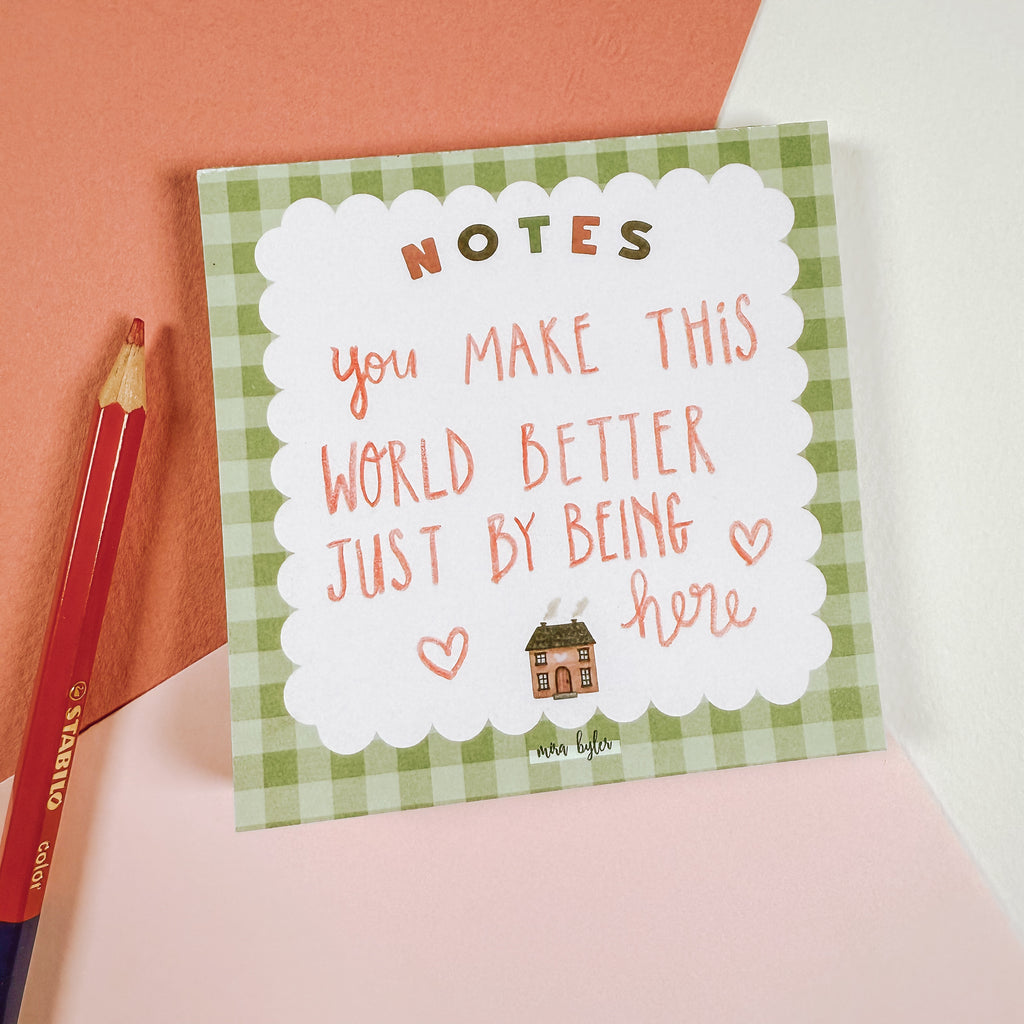 NOTES
you MAKE THiS
WORLD BETTER
JUST BY BEING
here
mira byler
STABILO color